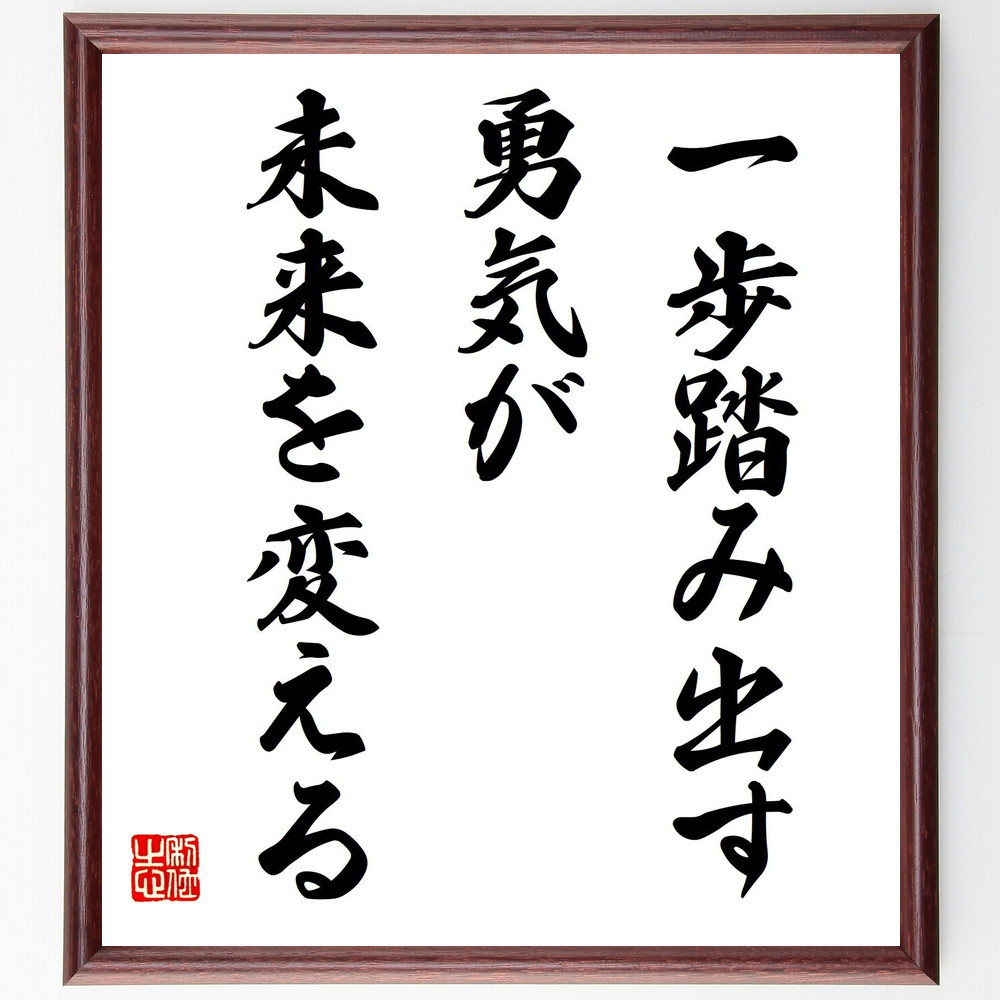 一歩踏み出す
勇気が
未来を変える